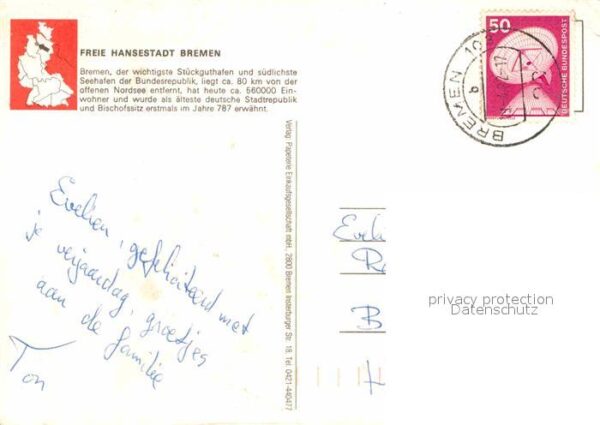 FREIE HANSESTADT BREMEN
Bremen, der wichtigste Stückguthafen und südlichste
Seehafen der Bundesrepublik, liegt ca. 80 km von der
offenen Nordsee entfernt, hat heute ca. 560000 Ein-
wohner und wurde als älteste deutsche Stadtrepublik
und Bischofssitz erstmals im Jahre 787 erwähnt.
50
DEUTSCHE BUNDESPOST
BREMEN 10
b
Verlag: Papeterie Einkaufsgesellschaft mbH, 2800 Bremen Insterburger Str. 18, Tel. 0421-440477
Evelien, gefeliciteerd met
je verjaardag, groetjes
aan de familie
Ton
B
privacy protection
Datenschutz